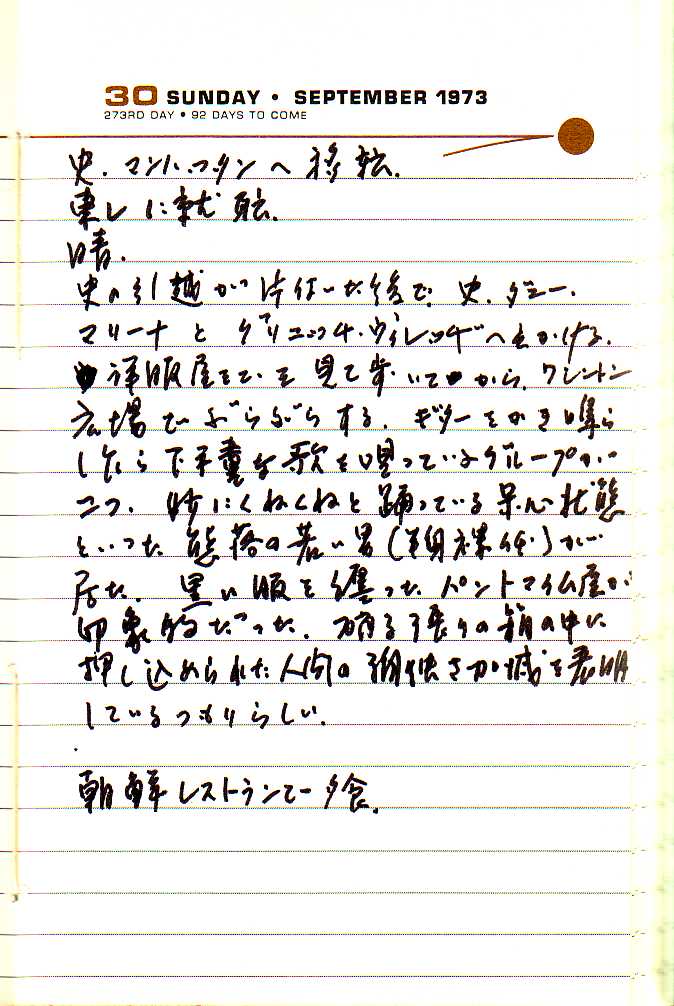 30 SUNDAY • SEPTEMBER 1973
273RD DAY • 92 DAYS TO COME
史、マンハッタンへ移転。
東レに就職。
晴。
史の引越が片付いた後で、史、ダニー、
マリーナとグリニッチ・ヴィレッヂへ出かける。
洋服屋などを見て歩いてから、ワシントン
広場でぶらぶらする。ギターをかき鳴ら
しながら下手糞な歌を唄っているグループが
二つ、妙にくねくねと踊っている 状態
といった 若い男(半身裸体)が
居た。黒い服を纏ったパントマイム屋が
印象的だった。 張りの箱の中に
押し込められた人間の 加減を表明
しているつもりらしい。
朝鮮レストランで夕食。